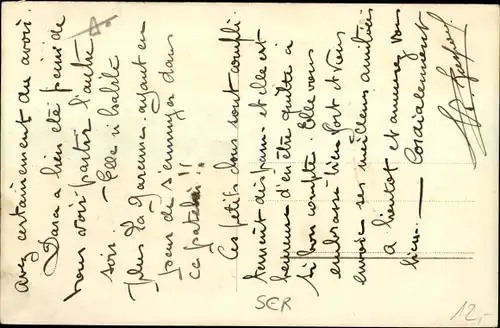 avez certainement du avoir.
Dana a bien été peiné de
vous voir partir l'autre
soir. — Elle n'habite
plus la Garenne ayant eu
peur de s'ennuyer dans
ce patelin !!
Ces petits dons sont compli-
tement disparu et elle est
heureuse d'en être quitte à
si bon compte. Elle vous
embrasse bien fort et vous
envoie ses meilleurs amitiés
A bientot et amusez vous
bien — Cordialement
SER
12,-